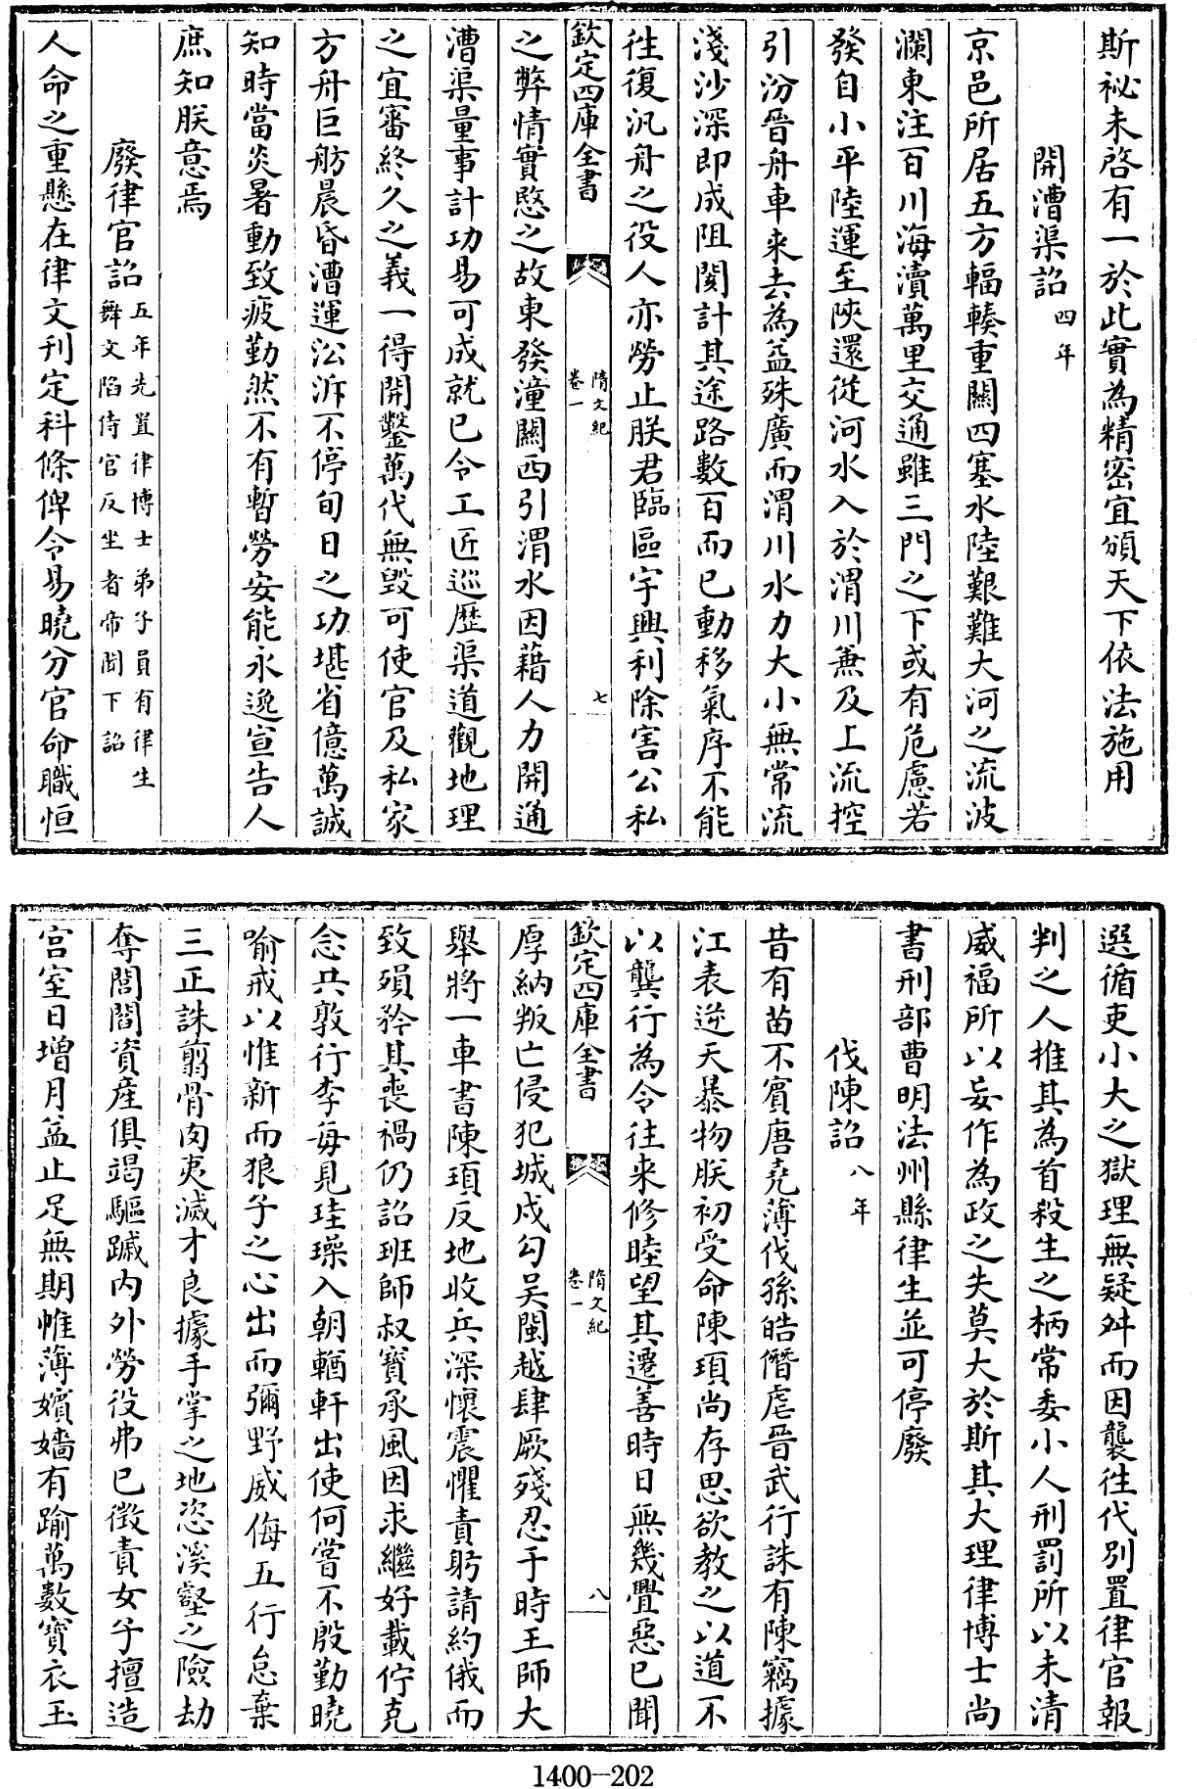 斯祕未啓有一於此實為精密宜頒天下依法施用
開漕渠詔四年
京邑所居五方輻輳重關四塞水陸艱難大河之流波
瀾東注百川海瀆萬里交通雖三門之下或有危慮若
發自小平陸運至陜還從河水入於渭川兼及上流控
引汾晉舟車來去為益殊廣而渭川水力大小無常流
淺沙深即成阻閡計其途路數百而已動移氣序不能
往復汎舟之役人亦勞止朕君臨區宇興利除害公私
欽定四庫全書
隋文紀
卷一
七
之弊情實愍之故東發潼關西引渭水因藉人力開通
漕渠量事計功易可成就已令工匠巡歷渠道觀地理
之宜審終久之義一得開鑿萬代無毀可使官及私家
方舟巨舫晨昏漕運沿泝不停旬日之功堪省億萬誠
知時當炎暑動致疲勤然不有暫勞安能永逸宣告人
庶知朕意焉
廢律官詔五年先置律博士弟子員有律生
舞文陷侍官反坐者帝聞下詔
人命之重懸在律文刋定科條俾令易曉分官命職恒
選循吏小大之獄理無疑舛而因襲往代別置律官報
判之人推其為首殺生之柄常委小人刑罰所以未清
威福所以妄作為政之失莫大於斯其大理律博士尚
書刑部曹明法州縣律生並可停廢
伐陳詔八年
昔有苗不賓唐堯薄伐孫皓僭虐晉武行誅有陳竊據
江表逆天暴物朕初受命陳頊尚存思欲教之以道不
以龔行為令往來修睦望其遷善時日無幾釁惡已聞
欽定四庫全書
隋文紀
卷一
八
厚納叛亡侵犯城戍勾吳閩越肆厥殘忍于時王師大
舉將一車書陳頊反地收兵深懷震懼責躬請約俄而
致殞矜其喪禍仍詔班師叔寳承風因求繼好載佇克
念共敦行李毎見珪璪入朝輶軒出使何嘗不殷勤曉
喻戒以惟新而狼子之心出而彌野威侮五行怠棄
三正誅翦骨肉夷滅才良據手掌之地恣溪壑之險劫
奪閭閻資產俱竭驅蹙內外勞役弗已徵責女子擅造
宫室日增月益止足無期帷薄嬪嬙有踰萬數寳衣玉
1400-202